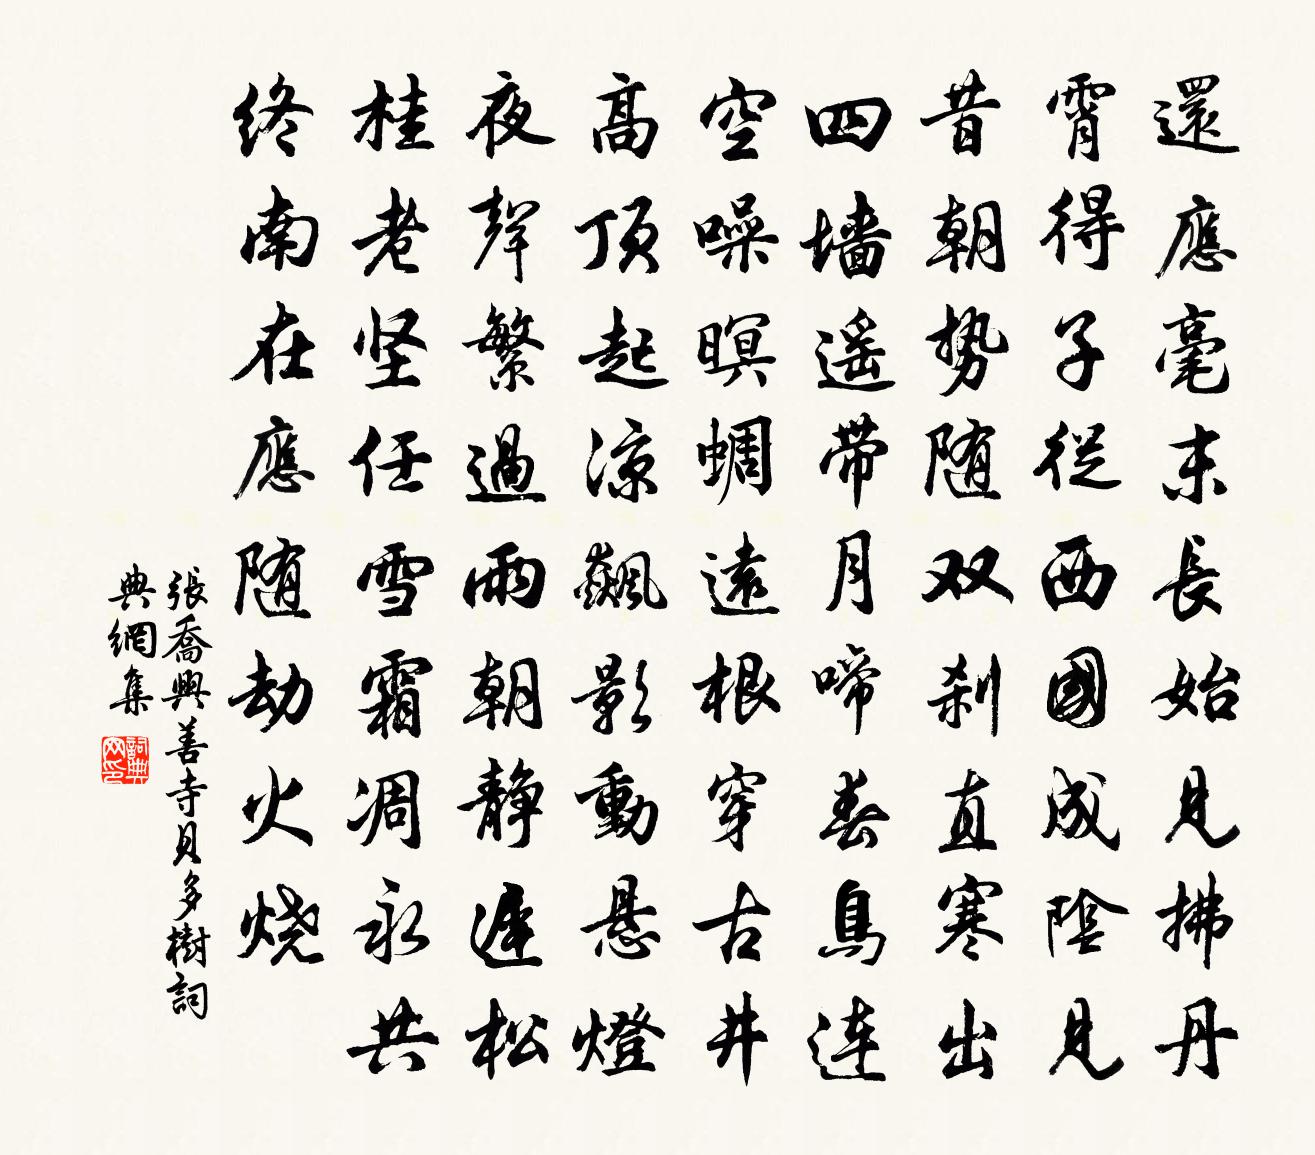 還應毫末長始見拂丹
霄得子從西國成陰見
昔朝势随双刹直寒出
四墙遥带月啼春鳥连
空噪暝蜩遠根穿古井
高顶起涼飆影動悬燈
夜聲繁過雨朝静遲松
桂老坚任雪霜凋永共
终南在應随劫火烧
張喬興善寺貝多樹詞
典網集
詞典
网印